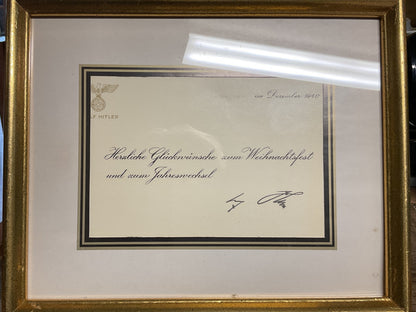 im Dezember 1940
LF HITLER
Herzliche Glückwünsche zum Weihnachtsfest
und zum Jahreswechsel